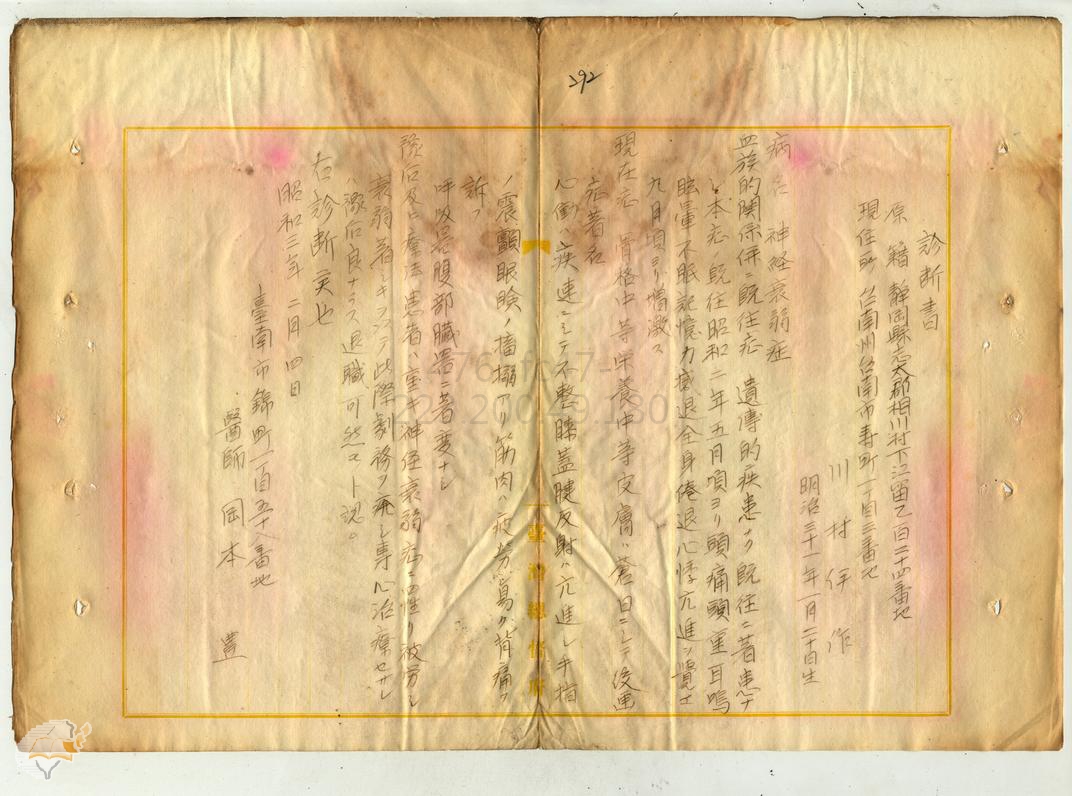 292
診断書
原籍 靜岡縣志太郡相川村下江留乙百二十四番地
現住所 台南州台南市寿町一丁目三番地
川村伊作
明治三十一年一月二十日生
病名 神経衰弱症
血族的関係併ニ既往症 遺傳的疾患ナク既往ニ著患ナ
シ本症ハ既往昭和二年五月頃ヨリ頭痛頭重耳鳴
眩暈不眠記憶力減退全身倦退心悸亢進ヲ覚ヱ
九月頃ヨリ増激ス
現在症 骨格中等栄養中等皮膚ハ蒼白ニシテ
症著名
心働ハ疾速ニシテ不整膝蓋腱反射ハ亢進シ手指
ノ震顫眼瞼ノ搐搦アリ筋肉ハ疲労シ易ク背痛ヲ
訴フ
呼吸器腹部臓器ニ著変ナシ
豫后及ビ療法 患者ハ重キ神経衰弱症ニ罹リ疲労シ
衰弱著シキヲ以テ此際劇務ヲ廃シ専心治療セサレ
ハ豫后良ナラス退職可然モノト認ム。
右診断候也
昭和三年二月四日
臺南市錦町一丁目百五十八番地
醫師 岡本 豊
臺灣總督府